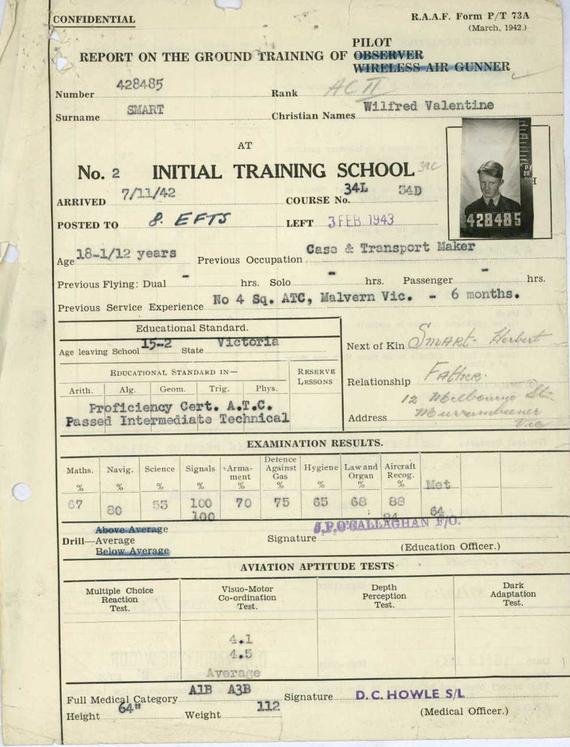 CONFIDENTIAL
R.A.A.F. Form P/T 73A
(March, 1942.)
PILOT
REPORT ON THE GROUND TRAINING OF OBSERVER
WIRELESS AIR GUNNER
Number 428485 Rank AC II
Surname SMART Christian Names Wilfred Valentine
AT
No. 2 INITIAL TRAINING SCHOOL
ARRIVED 7/11/42 COURSE No. 34L 34D
POSTED TO 8. EFTS LEFT 3 FEB 1943
428485
Age 18-1/12 years Previous Occupation Case & Transport Maker
Previous Flying: Dual - hrs. Solo - hrs. Passenger - hrs.
Previous Service Experience No 4 Sq. ATC, Malvern Vic. - 6 months.
Educational Standard.
Age leaving School 15-2 State Victoria
EDUCATIONAL STANDARD IN— RESERVE LESSONS
Arith. Alg. Geom. Trig. Phys.
Proficiency Cert. A.T.C.
Passed Intermediate Technical
Next of Kin Smart Herbert
Relationship Father.
12 Melbourne St.
Address Murrumbeena
Vic
EXAMINATION RESULTS.
Maths. % Navig. % Science % Signals % Armament % Defence Against Gas % Hygiene % Law and Organ % Aircraft Recog. % Met
67 80 53 100 70 75 65 68 88 64
100 84
Above Average
Drill—Average
Below Average
Signature J.P.O'CALLAGHAN F/O.
(Education Officer.)
AVIATION APTITUDE TESTS
Multiple Choice Reaction Test. Visuo-Motor Co-ordination Test. Depth Perception Test. Dark Adaptation Test.
4.1
4.5
Average
Full Medical Category A1B A3B Signature D.C. HOWLE S/L
Height 64" Weight 112 (Medical Officer.)